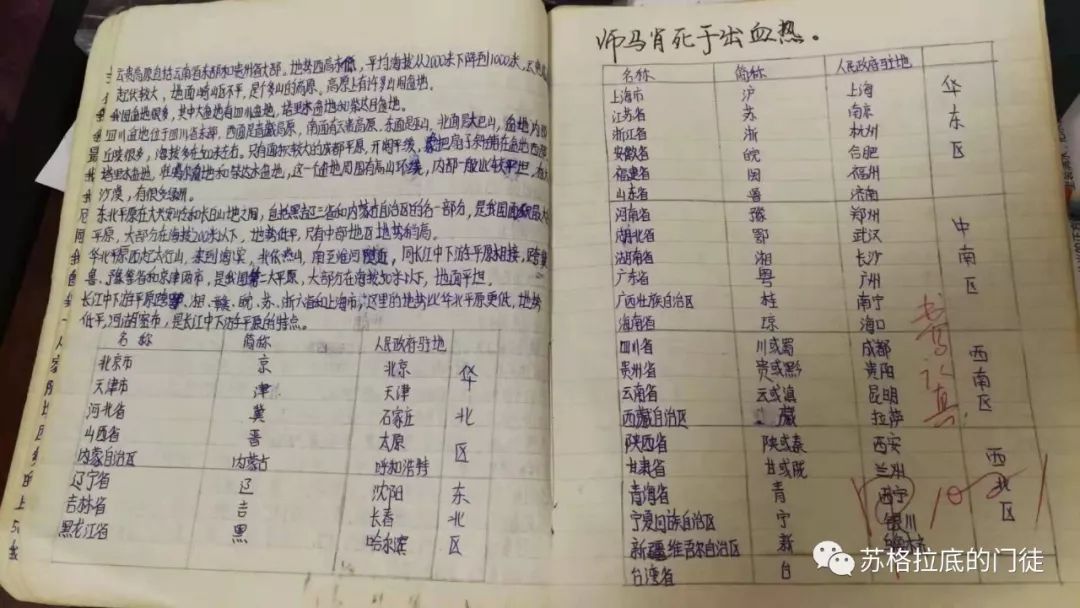 云贵高原包括云南省东部和贵州省大部。地势西高东低，平均海拔从2000米下降到1000米，
起伏较大，地面崎岖不平，是个多山的高原。高原上有许多山间盆地。
我国盆地很多，其中大盆地有四川盆地，塔里木盆地和柴达木盆地。
四川盆地位于四川省东部，西面是青藏高原，南面有云贵高原，东面是巫山，北面是大巴山，盆地内部
丘陵很多，海拔多在500米左右。只有面积较大的成都平原，开阔平缓，把扇子斜铺在盆地西部
塔里木盆地，准噶尔盆地和柴达木盆地，这一盆地周围有高山环绕，内部一般比较平坦，有
沙漠，有很多绿洲。
东北平原在大兴安岭和长白山地之间，包括黑吉辽三省和内蒙古自治区的各一部分，是我国面积最大
平原，大部分在海拔200米以下，地势低平，只有中部地区地势稍高。
华北平原西起太行山，东到海滨，北依燕山，南至淮河附近，同长江中下游平原相接，
鲁、豫等省和京津两市，是我国第二大平原，大部分在海拔50米以下，地面平坦
长江中下游平原 湘、赣、皖、苏、浙六省和上海市，这里的地势从华北平原更低，地势
低平，河湖密布，是长江中下游平原的特点。
名称 简称 人民政府驻地
北京市 京 北京 华
天津市 津 天津
河北省 冀 石家庄 北
山西省 晋 太原
内蒙自治区 内蒙古 呼和浩特 区
辽宁省 辽 沈阳 东
吉林省 吉 长春 北
黑龙江省 黑 哈尔滨 区
师马肖死于出血热。
名称 简称 人民政府驻地
上海市 沪 上海 华
江苏省 苏 南京
浙江省 浙 杭州 东
安徽省 皖 合肥 区
福建省 闽 福州
山东省 鲁 济南
河南省 豫 郑州 中
湖北省 鄂 武汉
湖南省 湘 长沙 南
广东省 粤 广州
广西壮族自治区 桂 南宁 区
海南省 琼 海口
四川省 川或蜀 成都 西
贵州省 贵或黔 贵阳
云南省 云或滇 昆明 南
西藏自治区 藏 拉萨 区
陕西省 陕或秦 西安
甘肃省 甘或陇 兰州 西
青海省 青 西宁 北
宁夏回族自治区 宁 银川 区
新疆维吾尔自治区 新
台湾省 台
书写认真
苏格拉底的门徒